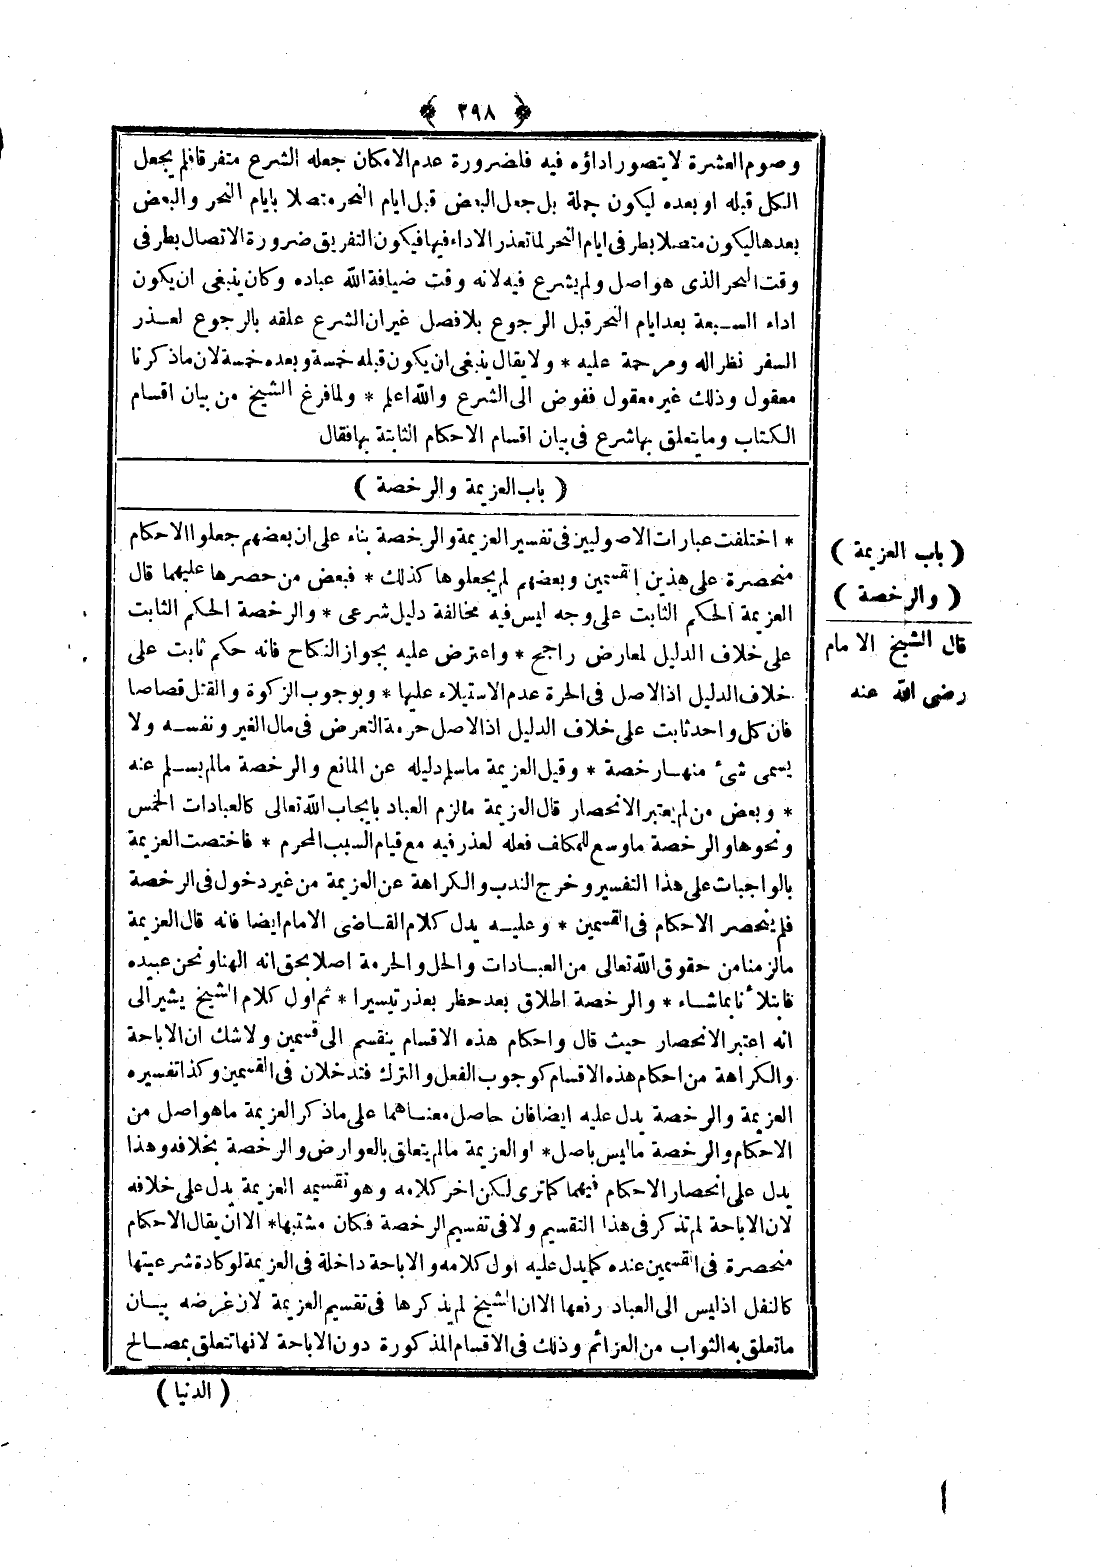 ﴿ ٢٩٨ ﴾
وصوم العشرة لا يتصور اداؤه فيه فلضرورة عدم الامكان جعله الشرع متفرقا فلم يجعل
الكل قبله او بعده ليكون جملة بل جعل البعض قبل ايام النحر متصلا بايام النحر والبعض
بعدها ليكون متصلا بطرفى ايام النحر لما تعذر الاداء فيها فيكون التفريق ضرورة الاتصال بطرفى
وقت النحر الذى هو اصل ولم يشرع فيه لانه وقت ضيافة الله عباده وكان ينبغى ان يكون
اداء السبعة بعد ايام النحر قبل الرجوع بلا فصل غير ان الشرع علقه بالرجوع لعذر
السفر نظرا له ومرحمة عليه * ولا يقال ينبغى ان يكون قبله خمسة وبعده خمسة لان ما ذكرنا
معقول وذلك غير معقول ففوض الى الشرع والله اعلم * ولما فرغ الشيخ من بيان اقسام
الكتاب وما يتعلق بها شرع فى بيان اقسام الاحكام الثابتة بها فقال
( باب العزيمة والرخصة )
* اختلفت عبارات الاصوليين فى تفسير العزيمة والرخصة بناء على ان بعضهم جعلوا الاحكام
منحصرة على هذين القسمين وبعضهم لم يجعلوها كذلك * فبعض من حصرها عليهما قال
العزيمة الحكم الثابت على وجه ليس فيه مخالفة دليل شرعى * والرخصة الحكم الثابت
على خلاف الدليل لمعارض راجح * واعترض عليه بجواز النكاح فانه حكم ثابت على
خلاف الدليل اذ الاصل فى الحرة عدم الاستيلاء عليها * وبوجوب الزكوة والقتل قصاصا
فان كل واحد ثابت على خلاف الدليل اذ الاصل حرمة التعرض فى مال الغير ونفسه ولا
يسمى شئ منها رخصة * وقيل العزيمة ما سلم دليله عن المانع والرخصة ما لم يسلم عنه
* وبعض من لم يعتبر الانحصار قال العزيمة ما لزم العباد بايجاب الله تعالى كالعبادات الخمس
ونحوها والرخصة ما وسع للمكلف فعله لعذر فيه مع قيام السبب المحرم * فاختصت العزيمة
بالواجبات على هذا التفسير وخرج الندب والكراهة عن العزيمة من غير دخول فى الرخصة
فلم ينحصر الاحكام فى القسمين * وعليه يدل كلام القاضى الامام ايضا فانه قال العزيمة
ما لزمنا من حقوق الله تعالى من العبادات والحل والحرمة اصلا بحق انه الهنا ونحن عبيده
فابتلأنا بما شاء * والرخصة اطلاق بعد حظر بعذر تيسيرا * ثم اول كلام الشيخ يشير الى
انه اعتبر الانحصار حيث قال واحكام هذه الاقسام ينقسم الى قسمين ولا شك ان الاباحة
والكراهة من احكام هذه الاقسام كوجوب الفعل والترك فتدخلان فى القسمين وكذا تفسيره
العزيمة والرخصة يدل عليه ايضا فان حاصل معناهما على ما ذكر العزيمة ما هو اصل من
الاحكام والرخصة ما ليس باصل * او العزيمة ما لم يتعلق بالعوارض والرخصة بخلافه وهذا
يدل على انحصار الاحكام فيهما كما ترى لكن اخر كلامه وهو تقسيمه العزيمة يدل على خلافه
لان الاباحة لم تذكر فى هذا التقسيم ولا فى تقسيم الرخصة فكان مشتبها * الا ان يقال الاحكام
منحصرة فى القسمين عنده كما يدل عليه اول كلامه والاباحة داخلة فى العزيمة لوكادة شرعيتها
كالنفل اذ ليس الى العباد رفعها الا ان الشيخ لم يذكرها فى تقسيم العزيمة لان غرضه بيان
ما تعلق به الثواب من العزائم وذلك فى الاقسام المذكورة دون الاباحة لانها تتعلق بمصالح
( الدنيا )
( باب العزيمة )
( والرخصة )
قال الشيخ الامام
رضى الله عنه